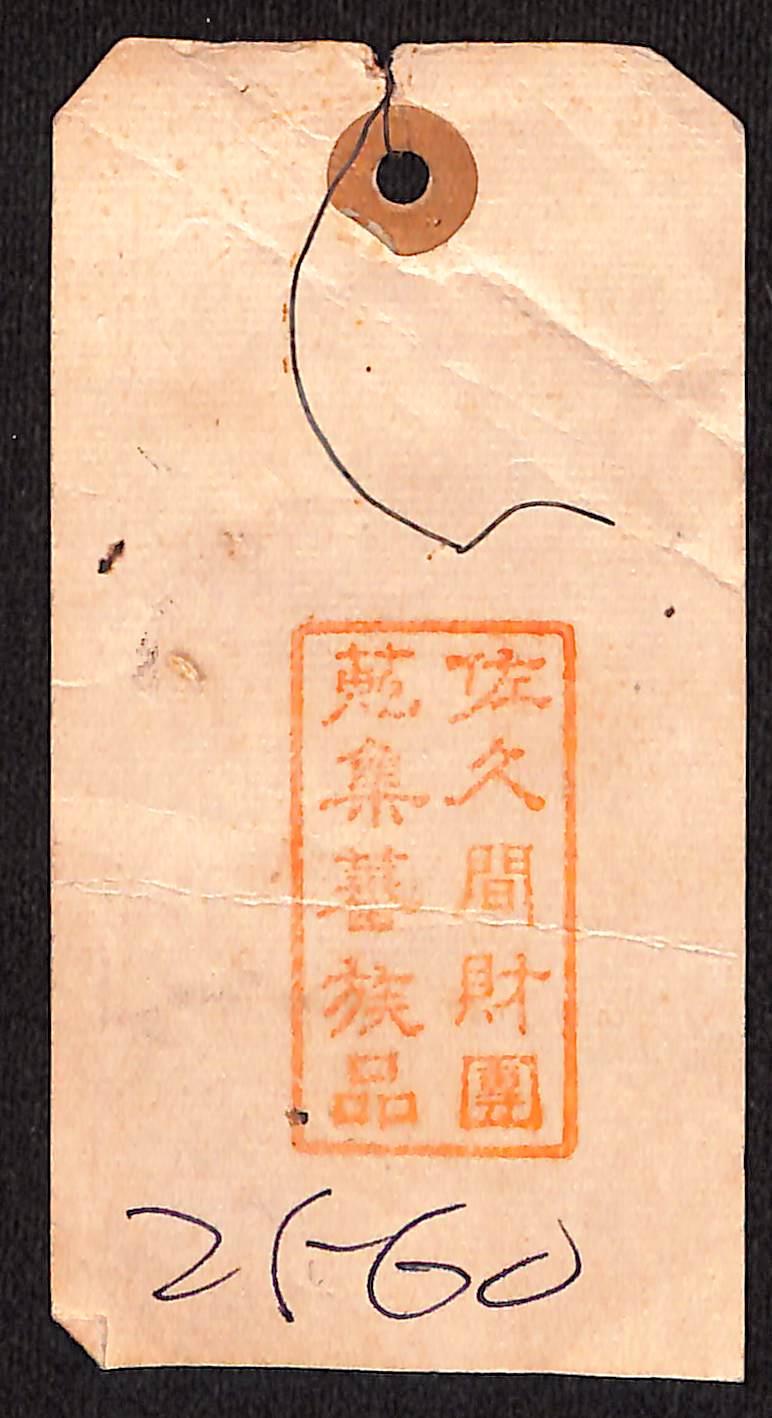 佐久間財團
蒐集蕃族品
21-60